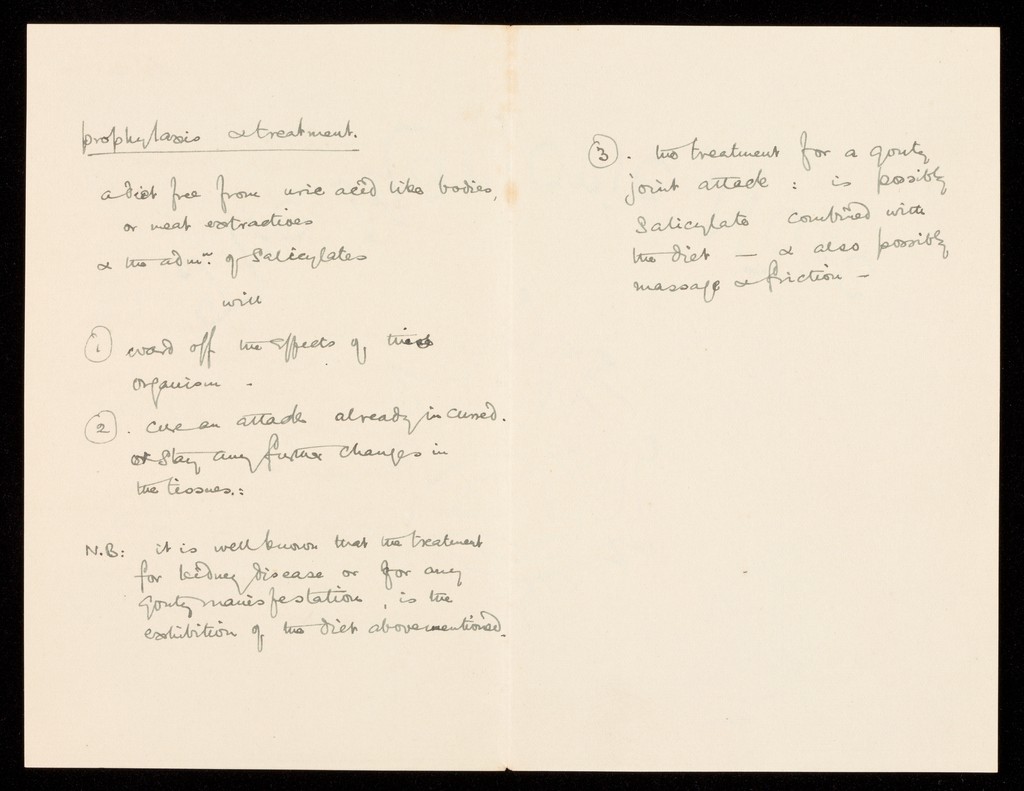 prophylaxis & treatment.
a diet free from uric acid like bodies,
or meat extractives
& the admn. of Salicylates
will
1 ward off the effects of this
organism -
2. cure an attack already incurred.
or stay any further changes in
the tissues.:
N.B: it is well known that the treatment
for kidney disease or for any
gouty manisfestation, is the
exhibition of the diet abovementioned.
3. the treatment for a gouty
joint attack : is possibly
Salicylate combined with
the diet — & also possibly
massage & friction -